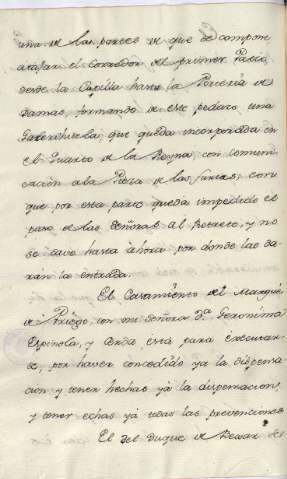 una de las partes de que se compone
atajar el corredor del primer Patio
desde la Capilla hasta la Porteria de
Damas, formando de este pedazo una
Galerihuela, que queda incorporada en
el Quarto de la Reyna, con comuni-
cacion a la Pieza de las furias, con
que por esta parte queda impedido el
paso de las Señoras al Retrete, y no
se save hasta ahora por donde las da-
ran la entrada.
El Casamiento del Marqués
de Priego, con mi Señora D.ª Geronima
Espinola, y Cerda está para executar-
se, por haver concedido ya la dispensa-
cion y tener hechas yá la dispensacion,
y tener echas yá todas las prevenciones
El del Duque de Bexar